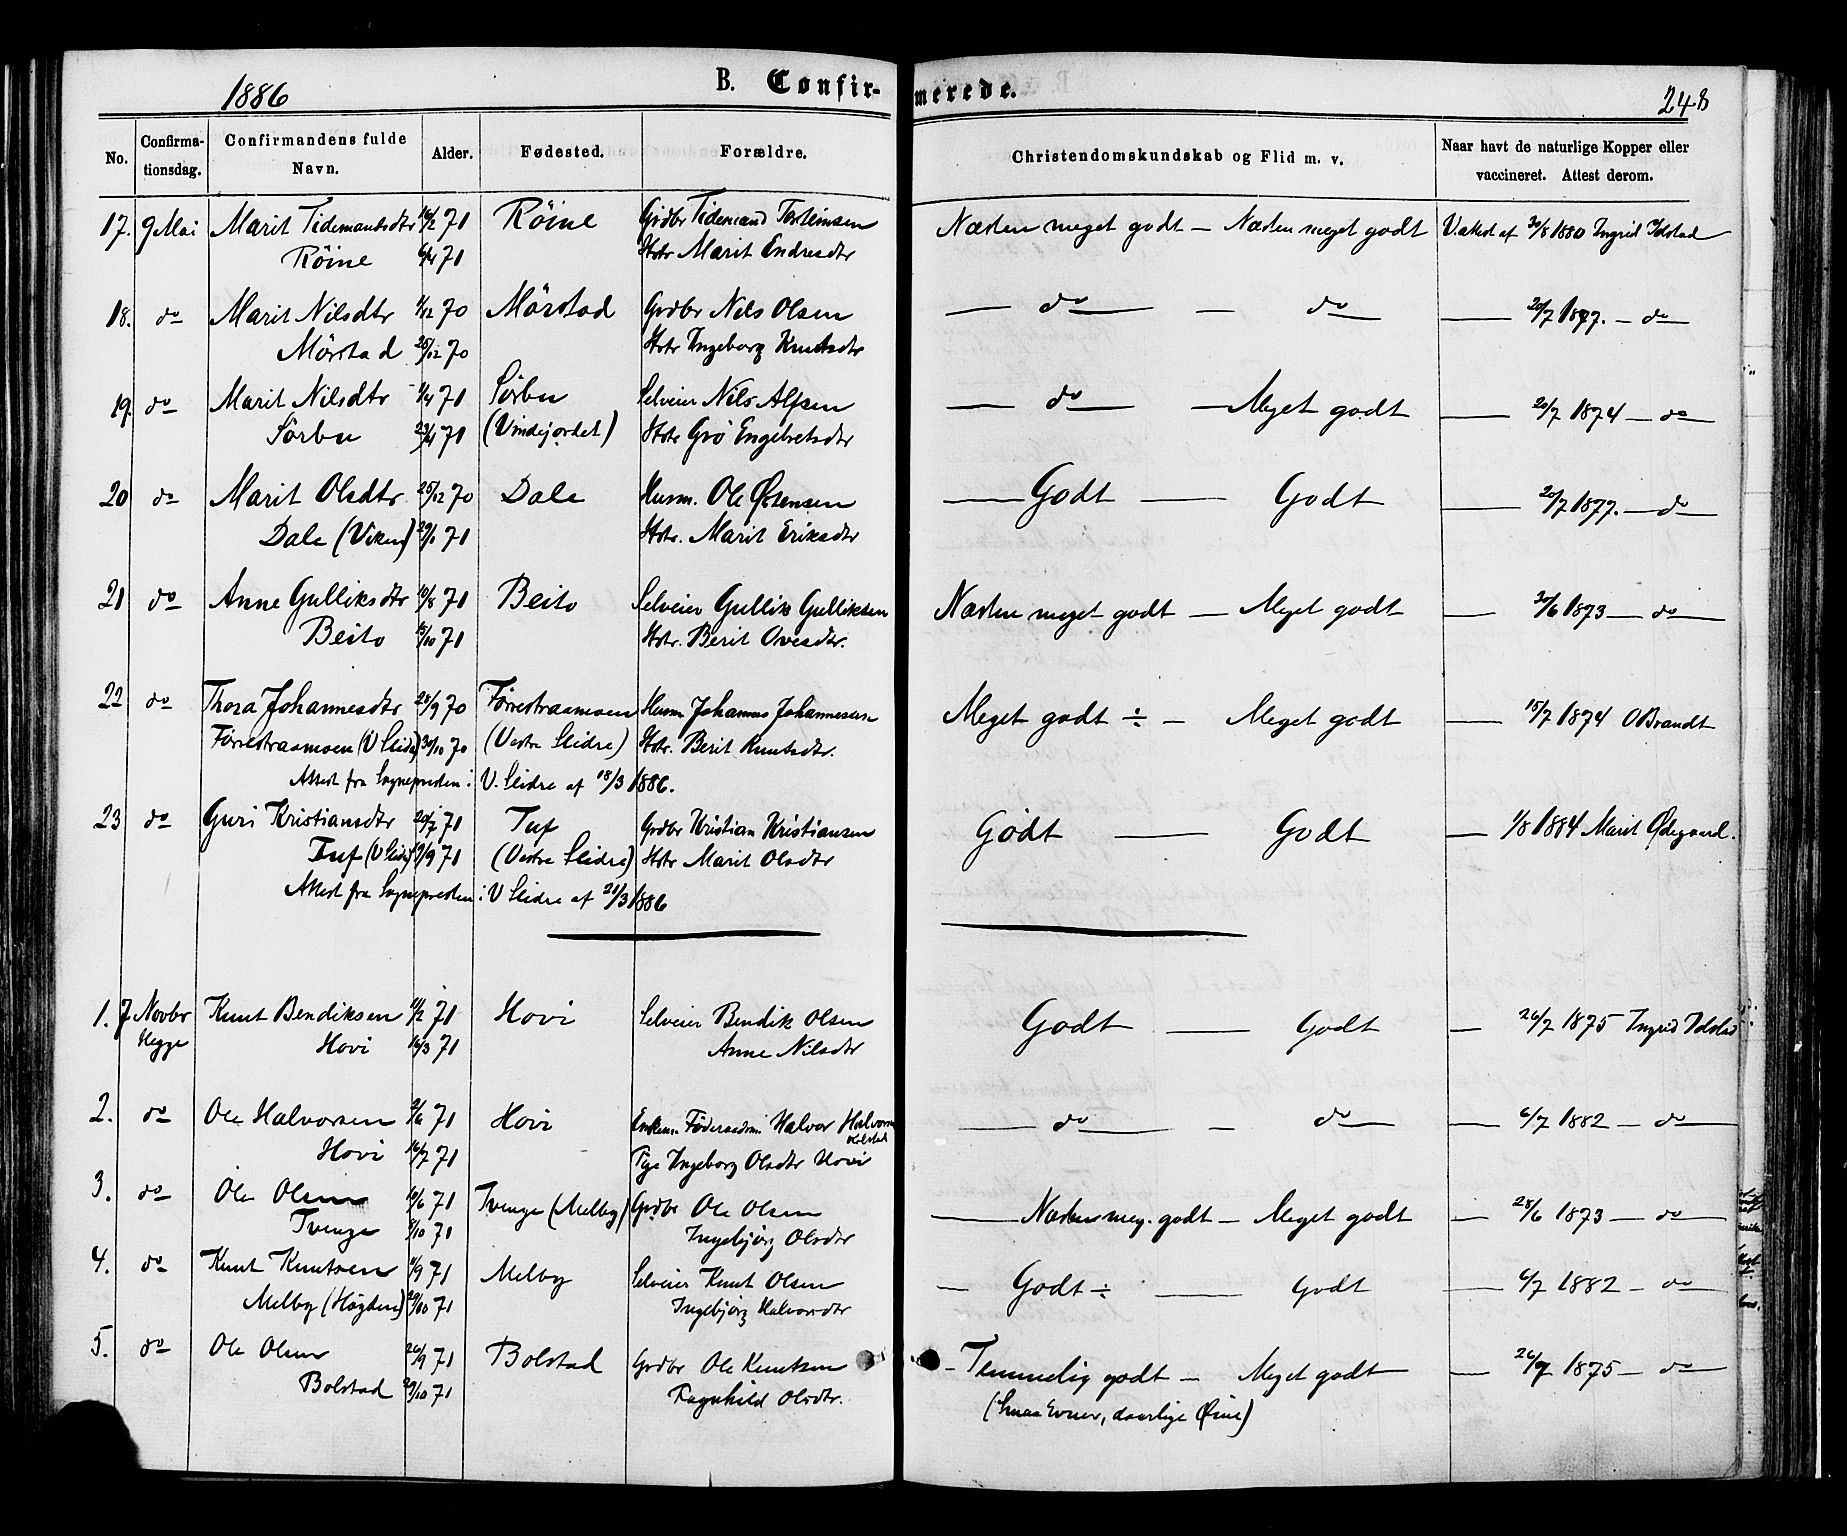 1886 B. Confirmerede. 248
No. Confirmationsdag. Confirmandens fulde Navn. Alder. Fødested. Forældre. Christendomskundskab og Flid m. v. Naar havt de naturlige Kopper eller vaccineret. Attest derom.
17. 9 Mai Marit Tidemandsdtr 71 Röine Grdbr Tidemand Torsteinsen Næsten meget godt — Næsten meget godt Vakst af 30/8 1880 Ingrid Idstad
Röine 71 Hstr Marit Endresdtr
18. do Marit Nilsdtr 1/12 70 Mörstad Grdbr Nils Olsen — do — — do — — 20/7 1877. — do —
Mörstad 25/12 70 Hstr Ingeborg Knutsdtr
19. do Marit Nilsdtr 1/4 71 Sörbu Selveier Nils Alfsen — do — — Meget godt — 20/7 1874 — do —
Sörbu 23/4 71 (Vindejordet) Hstr Grö Engebretsdtr
20 do Marit Olsdtr 25/12 70 Dale Husm. Ole Østensen — Godt — Godt — 20/7 1877. — do —
Dale (Viken) 29/1 71 Hstr. Marit Eriksdtr
21 do Anne Gulliksdtr 10/8 71 Beito Selveier Gullik Gulliksen Næsten meget godt — Meget godt — 30/6 1873 — do —
Beito 15/10 71 Hstr. Berit Ovesdtr.
22 do Thora Johannesdtr 28/9 70 Förrestraamoen Husm Johannes Johannessen Meget godt ÷ — Meget godt — 15/7 1874 O Brandt
Förrestraamoen (V Slidre) 30/10 70 (Vestre Slidre) Hstr. Berit Knutsdtr.
Attest fra Sognepresten i V. Slidre af 18/3 1886.
23 do Guri Kristiansdtr 20/7 71 Tuf Grdbr Kristian Kristiansen Godt — Godt — 1/8 1884 Marit Ødegaard.
Tuf (V Slidre) 3/9 71 (Vestre Slidre) Hstr Marit Olsdtr
Attest fra Sognepresten i V Slidre af 21/3 1886
1. 7 Novbr Knut Bendiksen 11/2 71 Hovi Selveier Bendik Olsen Godt — Godt — 26/7 1875 Ingrid Idstad
Hegge Hovi 16/3 71 Anne Nilsdtr
2. do Ole Halvorsen 2/6 71 Hovi Enkem. Föderaadsm. Halvor Halvorsen — do — — do — — 6/7 1882 — do —
Kolstad
Hovi 16/7 71 Pige Ingeborg Olsdtr Hovi
3. do Ole Olsen 10/6 71 Tvenge (Melby) Grdbr Ole Olsen — Næsten meg. godt — Meget godt — 28/6 1873 — do —
Tvenge 8/10 71 Ingebjörg Olsdtr
4. do Knut Knutsen 11/9 71 Melby Selveier Knut Olsen — Godt ÷ — Godt — 6/7 1882 — do —
Melby (Høgden) 29/10 71 Ingebjörg Halvorsdtr
5. do Ole Olsen 26/9 71 Bolstad Grdbr Ole Knutsen — Temmelig godt — Meget godt — 26/7 1875 — do —
Bolstad 29/10 71 Ragnhild Olsdtr. (Smaa Evner, daarlige Øine)